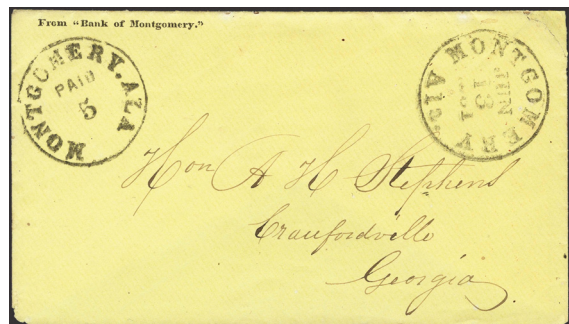 From "Bank of Montgomery."
MONTGOMERY. ALA
PAID
5
MONTGOMERY Ala.
JUN
13
Hon A H Stephens
Crawfordville
Georgia